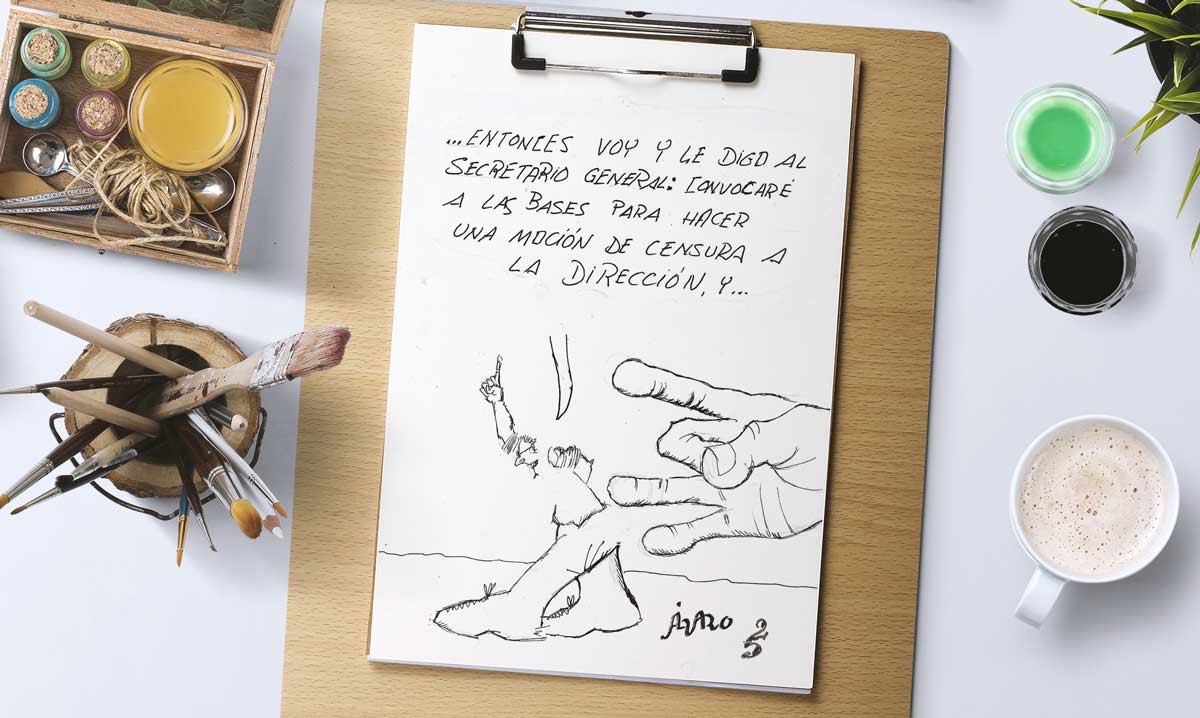 ...ENTONCES VOY Y LE DIGO AL
SECRETARIO GENERAL: CONVOCARÉ
A LAS BASES PARA HACER
UNA MOCIÓN DE CENSURA A
LA DIRECCIÓN, Y...
25